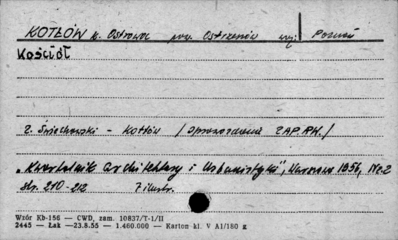 KOTŁÓW k. Ostrowa pow. Ostrzeszów woj. Poznań
Kościół
Z. Świechowski - Kotłów / Sprawozdanie ZAP.PH. /
„Kwartalnik Architektury i Urbanistyki", Warszawa 1956, Nr. 2
str. 210-212 7 ilustr.
Wzór Kb-156 — CWD, zam. 10837/T-1/II
2445 — Łak —23.8.55 — 1.460.000 — Karton kl. V A1/180 g